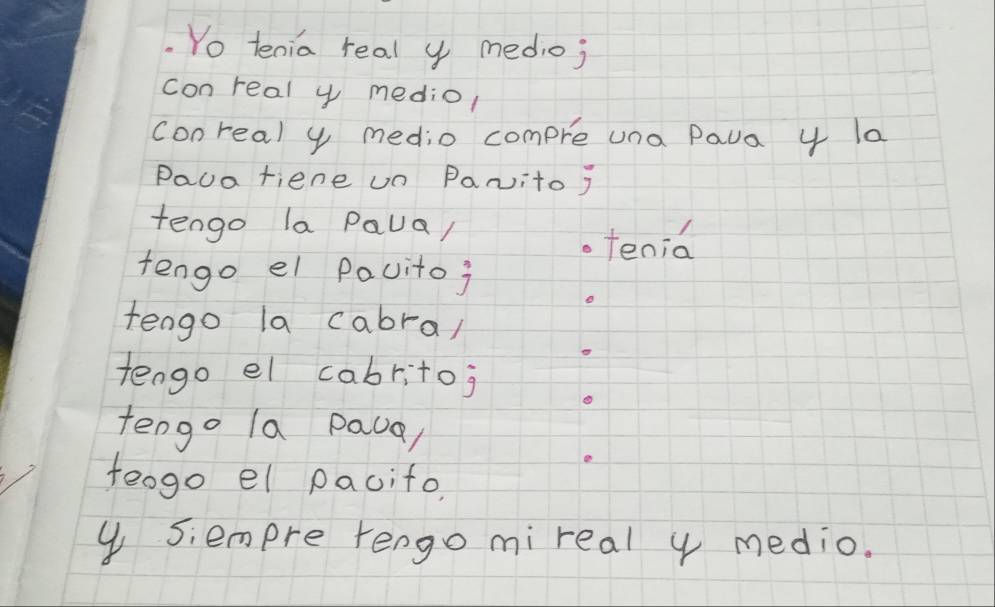 .Yo tenía real y medio;
con real y medio,
con real y medio compré una Pava y la
Pava tiene un Pavito;
tengo la Pava,
tengo el Pavito;
• tenía
tengo la cabra,
tengo el cabrito;
tengo la Pava,
tengo el pacito.
y siempre tengo mi real y medio.